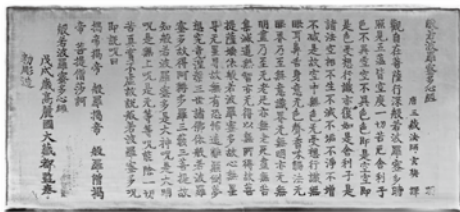 般若波羅蜜多心經
唐三藏法師玄奘譯
觀自在菩薩行深般若波羅蜜多時
照見五蘊皆空度一切苦厄舍利子
色不異空空不異色色卽是空空卽
是色受想行識亦復如是舍利子是
諸法空相不生不滅不垢不淨不增
不減是故空中無色無受想行識無
眼耳鼻舌身意無色聲香味觸法無
眼界乃至無意識界無無明亦無無
明盡乃至無老死亦無老死盡無苦
集滅道無智亦無得以無所得故菩
提薩埵依般若波羅蜜多故心無罣
礙無罣礙故無有恐怖遠離顚倒夢
想究竟涅槃三世諸佛依般若波羅
蜜多故得阿耨多羅三藐三菩提故
知般若波羅蜜多是大神呪是大明
呪是無上呪是無等等呪能除一切
苦眞實不虛故說般若波羅蜜多呪
卽說呪曰
揭帝揭帝 般羅揭帝 般羅僧揭
帝 菩提僧莎訶
般若波羅蜜多心經
戊戌歲高麗國大藏都監奉
勅雕造